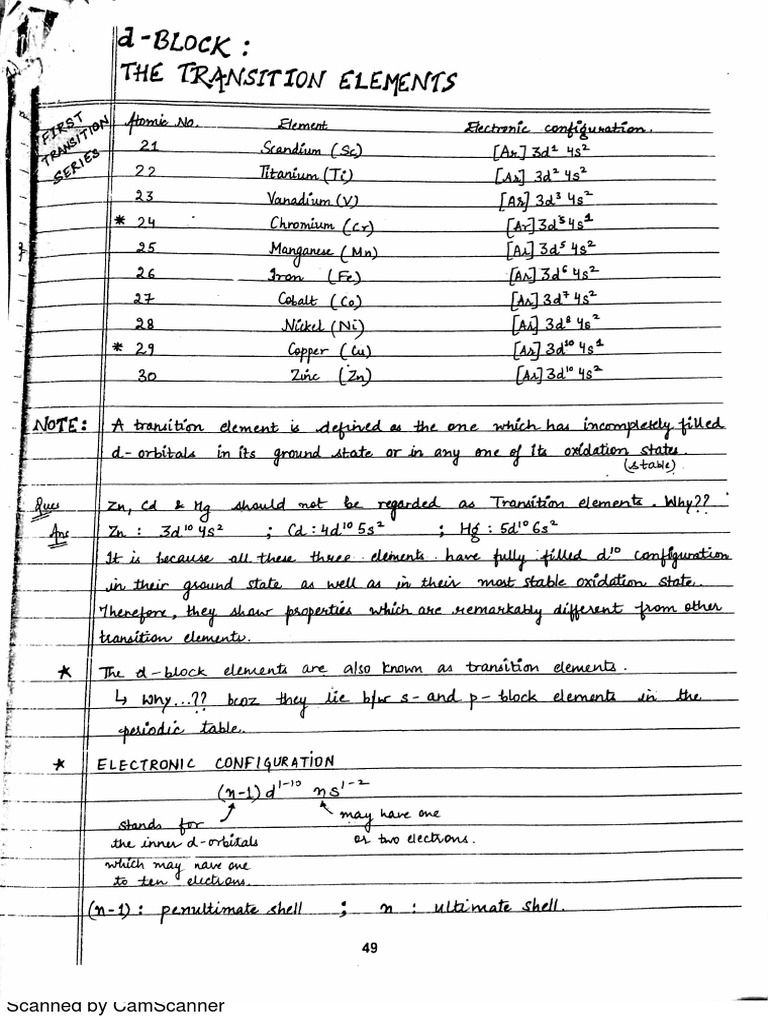 d-BLOCK :
THE TRANSITION ELEMENTS
FIRST TRANSITION SERIES
Atomic No. Element Electronic configuration.
21 Scandium (Sc) [Ar] 3d¹ 4s²
22 Titanium (Ti) [Ar] 3d² 4s²
23 Vanadium (V) [Ar] 3d³ 4s²
* 24 Chromium (Cr) [Ar] 3d⁵ 4s¹
25 Manganese (Mn) [Ar] 3d⁵ 4s²
26 Iron (Fe) [Ar] 3d⁶ 4s²
27 Cobalt (Co) [Ar] 3d⁷ 4s²
28 Nickel (Ni) [Ar] 3d⁸ 4s²
* 29 Copper (Cu) [Ar] 3d¹⁰ 4s¹
30 Zinc (Zn) [Ar] 3d¹⁰ 4s²
NOTE: A transition element is defined as the one which has incompletely filled
d-orbitals in its ground state or in any one of its oxidation states.
(stable)
Ques Zn, Cd & Hg should not be regarded as Transition elements. Why??
Ans Zn : 3d¹⁰ 4s² ; Cd : 4d¹⁰ 5s² ; Hg : 5d¹⁰ 6s²
It is because all these three elements have fully filled d¹⁰ configuration
in their ground state as well as in their most stable oxidation state.
Therefore, they show properties which are remarkably different from other
transition elements.
* The d-block elements are also known as transition elements.
↳ Why...?? bcoz they lie b/w s- and p-block elements in the
periodic table.
* ELECTRONIC CONFIGURATION
(n-1) d¹⁻¹⁰ ns¹⁻²
stands for
the inner d-orbitals
which may have one
to ten electrons.
may have one
or two electrons.
(n-1) : penultimate shell ; n : ultimate shell.
49
Scanned by CamScanner